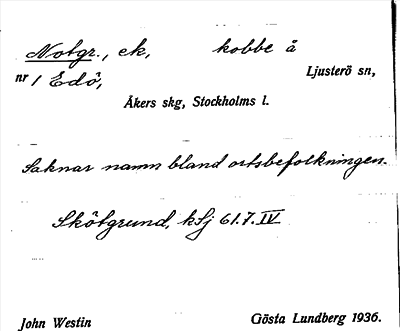 Notgr., ek, kobbe å
nr 1 Edö, Ljusterö sn,
Åkers skg, Stockholms l.
Saknar namn bland ortsbefolkningen.
Skötgrund, kSj 61.7.IV
John Westin Gösta Lundberg 1936.